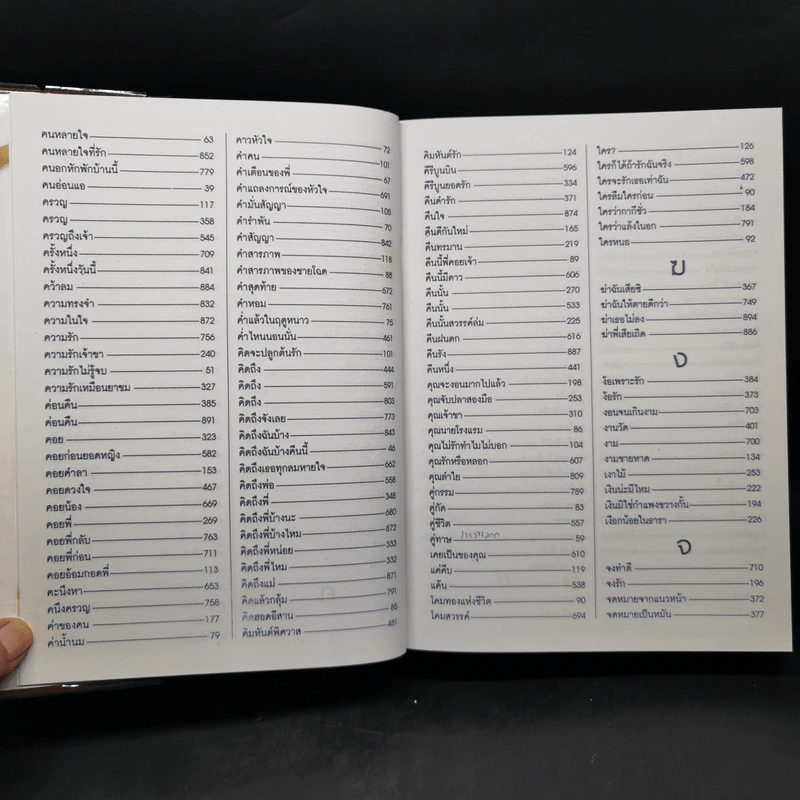 คนหลายใจ 63
คนหลายใจที่รัก 852
คนอกหักพักบ้านนี้ 779
คนอ่อนแอ 39
ครวญ 117
ครวญ 358
ครวญถึงเจ้า 545
ครั้งหนึ่ง 709
ครั้งหนึ่งวันนี้ 841
คว้าลม 884
ความทรงจำ 832
ความในใจ 872
ความรัก 756
ความรักเจ้าขา 240
ความรักไม่รู้จบ 51
ความรักเหมือนยาขม 327
ค่อนคืน 385
ค่อนคืน 891
คอย 323
คอยก่อนยอดหญิง 582
คอยคำลา 153
คอยดวงใจ 467
คอยน้อง 669
คอยพี่ 269
คอยพี่กลับ 763
คอยพี่ก่อน 711
คอยอ้อมกอดพี่ 113
คะนึงหา 653
คนึงครวญ 758
ค่าของคน 177
ค่าน้ำนม 79
คาวหัวใจ 72
คำคน 101
คำเตือนของพี่ 67
คำแถลงการณ์ของหัวใจ 691
คำมั่นสัญญา 105
คำรำพัน 70
คำสัญญา 842
คำสารภาพ 118
คำสารภาพของชายโฉด 88
คำสุดท้าย 672
คำหอม 761
ค่ำแล้วในฤดูหนาว 75
ค่ำไหนนอนนั่น 461
คิดจะปลูกต้นรัก 101
คิดถึง 444
คิดถึง 591
คิดถึง 803
คิดถึงจังเลย 773
คิดถึงฉันบ้าง 843
คิดถึงฉันบ้างคืนนี้ 46
คิดถึงเธอทุกลมหายใจ 662
คิดถึงพ่อ 558
คิดถึงพี่ 348
คิดถึงพี่บ้างนะ 680
คิดถึงพี่บ้างไหม 872
คิดถึงพี่หน่อย 332
คิดถึงพี่ไหม 332
คิดถึงแม่ 871
คิดแล้วกลุ้ม 791
คิดฮอดอีสาน 85
คิมหันต์พิศวาส 461
คิมหันต์รัก 124
คีรีบูนบิน 596
คีรีบูนยอดรัก 334
คืนคำรัก 371
คืนใจ 874
คืนดีกันใหม่ 165
คืนทรมาน 219
คืนนี้พี่คอยเจ้า 89
คืนนี้มีดาว 606
คืนนั้น 270
คืนนั้น 533
คืนนั้นสวรรค์ล่ม 225
คืนฝนตก 616
คืนรัง 887
คืนหนึ่ง 441
คุณจะงอนมากไปแล้ว 198
คุณจับปลาสองมือ 253
คุณเจ้าขา 310
คุณนายโรงแรม 86
คุณไม่รักทำไมไม่บอก 104
คุณรักหรือหลอก 607
คุณลำไย 809
คู่กรรม 789
คู่กัด 83
คู่ชีวิต 557
คู่ทาษ 59
เคยเป็นของคุณ 610
แค่คืบ 119
แค้น 538
โคมทองแห่งชีวิต 90
โคมสวรรค์ 694
ใคร? 126
ใครก็ได้ถ้ารักฉันจริง 598
ใครจะรักเธอเท่าฉัน 472
ใครลืมใครก่อน 90
ใครว่ากากีชั่ว 184
ใครว่าแล้งในอก 791
ใครหนอ 92
ฆ
ฆ่าฉันเสียซิ 367
ฆ่าฉันให้ตายดีกว่า 749
ฆ่าเธอไม่ลง 894
ฆ่าพี่เสียเถิด 886
ง
ง้อเพราะรัก 384
ง้อรัก 373
งอนจนเกินงาม 703
งานวัด 401
งาม 700
งามชายหาด 134
เงาไม้ 253
เงินน่ะมีไหม 222
เงินมิใช่กำแพงขวางกั้น 194
เงือกน้อยในธารา 226
จ
จงทำดี 710
จงรัก 196
จดหมายจากแนวหน้า 372
จดหมายเป็นหมัน 377